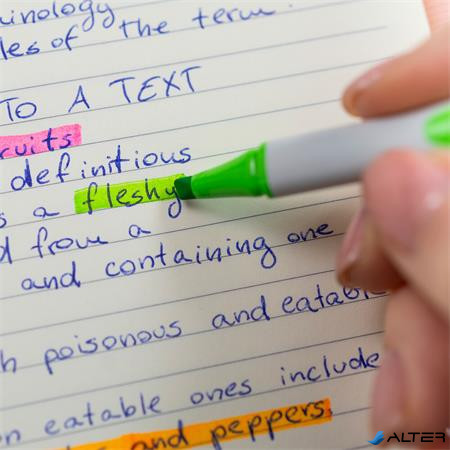 inology
les of the term.
TO A TEXT
ruits
definitious
s a fleshy
d from a
and containing one
h poisonous and eatab
n eatable ones include
and peppers
ALTER